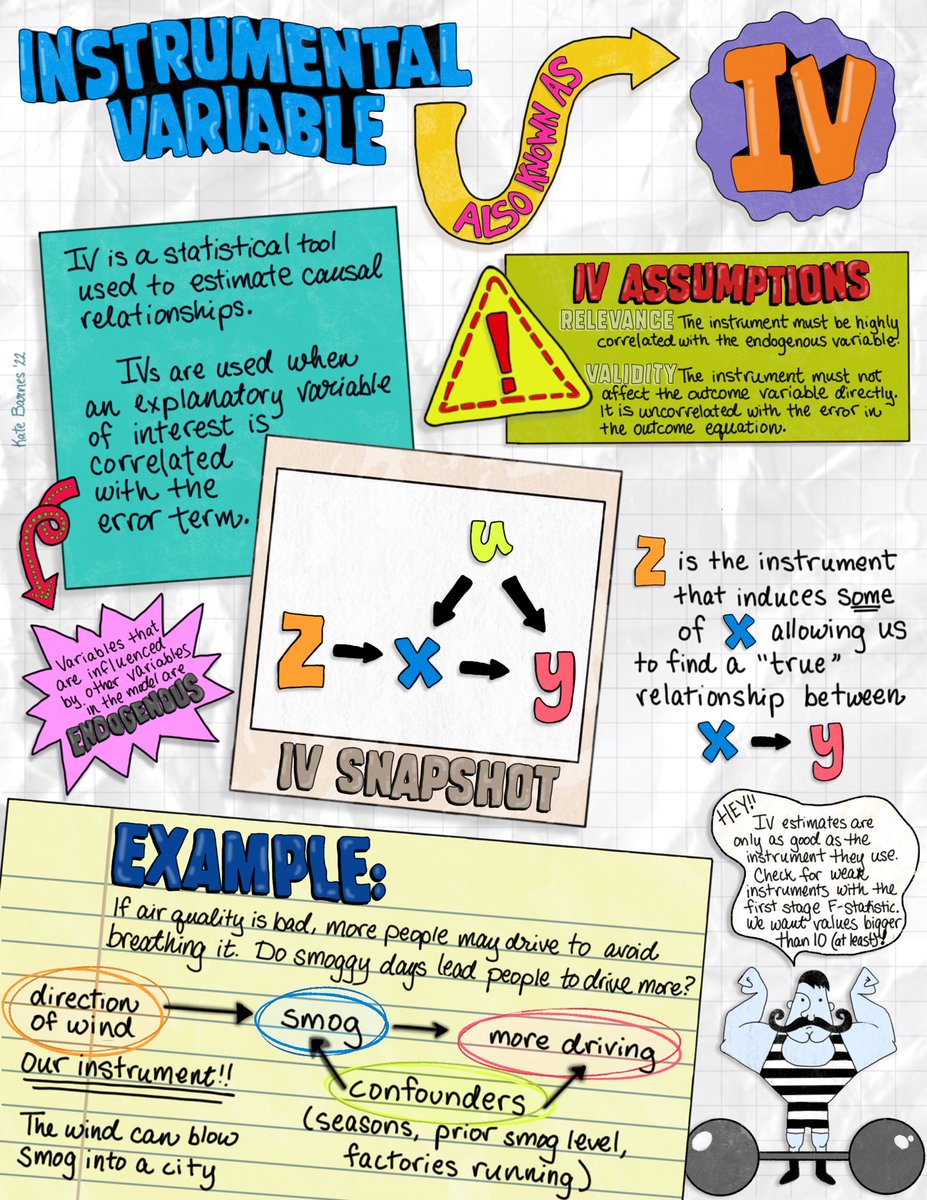 INSTRUMENTAL
VARIABLE
ALSO KNOWN AS
IV
IV is a statistical tool
used to estimate causal
relationships.
IVs are used when
an explanatory variable
of interest is
correlated
with the
error term.
Kate Barnes '22
IV ASSUMPTIONS
RELEVANCE The instrument must be highly
correlated with the endogenous variable.
VALIDITY The instrument must not
affect the outcome variable directly.
It is uncorrelated with the error in
the outcome equation.
!
Variables that
are influenced
by other variables
in the model are
ENDOGENOUS
u
Z
X
y
IV SNAPSHOT
Z is the instrument
that induces some
of X allowing us
to find a "true"
relationship between
X y
EXAMPLE:
If air quality is bad, more people may drive to avoid
breathing it. Do smoggy days lead people to drive more?
direction
of wind
smog
more driving
Our instrument!!
confounders
(seasons, prior smog level,
factories running)
The wind can blow
smog into a city
HEY!!
IV estimates are
only as good as the
instrument they use.
Check for weak
instruments with the
first stage F-statistic.
We want values bigger
than 10 (at least)!